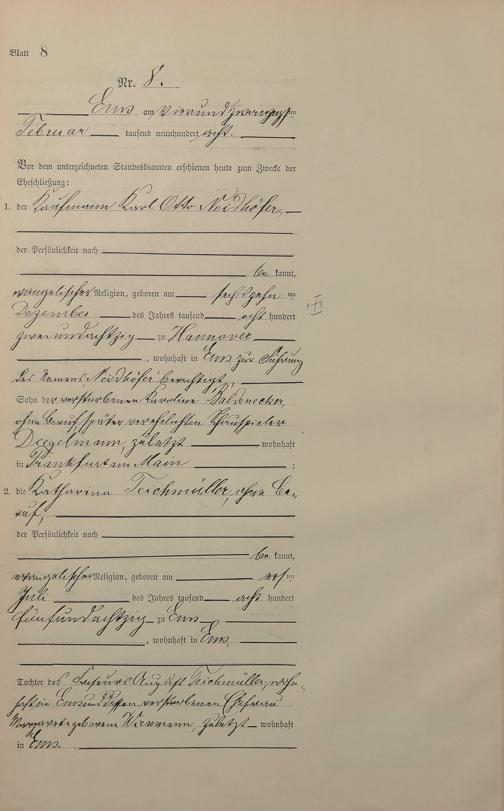 Blatt 8
Nr. 8.
Ems am vierundzwanzigsten
Februar tausend neunhundert acht.
Vor dem unterzeichneten Standesbeamten erschienen heute zum Zwecke der
Eheschließung:
1. der Kaufmann Karl Otto Neidhöfer,
der Persönlichkeit nach
be kannt,
evangelischer Religion, geboren am sechszehn ten
Dezember des Jahres tausend acht hundert
zweiundachtzig zu Hannover
, wohnhaft in Ems zur Führung
des Namens Neidhöfer berechtigt,
Sohn der verstorbenen Karoline Baldenecker,
ohne Beruf, später verehelichten Schauspieler
Diegelmann, zuletzt wohnhaft
in Frankfurt am Main ;
2. die Katharina Teichmüller, ohne Be-
ruf,
der Persönlichkeit nach
be kannt,
evangelischer Religion, geboren am ersten
Juli des Jahres tausend acht hundert
fünfundachtzig zu Ems
, wohnhaft in Ems,
Tochter des Friseurs August Teichmüller, wohn-
haft in Ems und dessen verstorbenen Ehefrau
Margarete geborene zuletzt wohnhaft
in Ems.